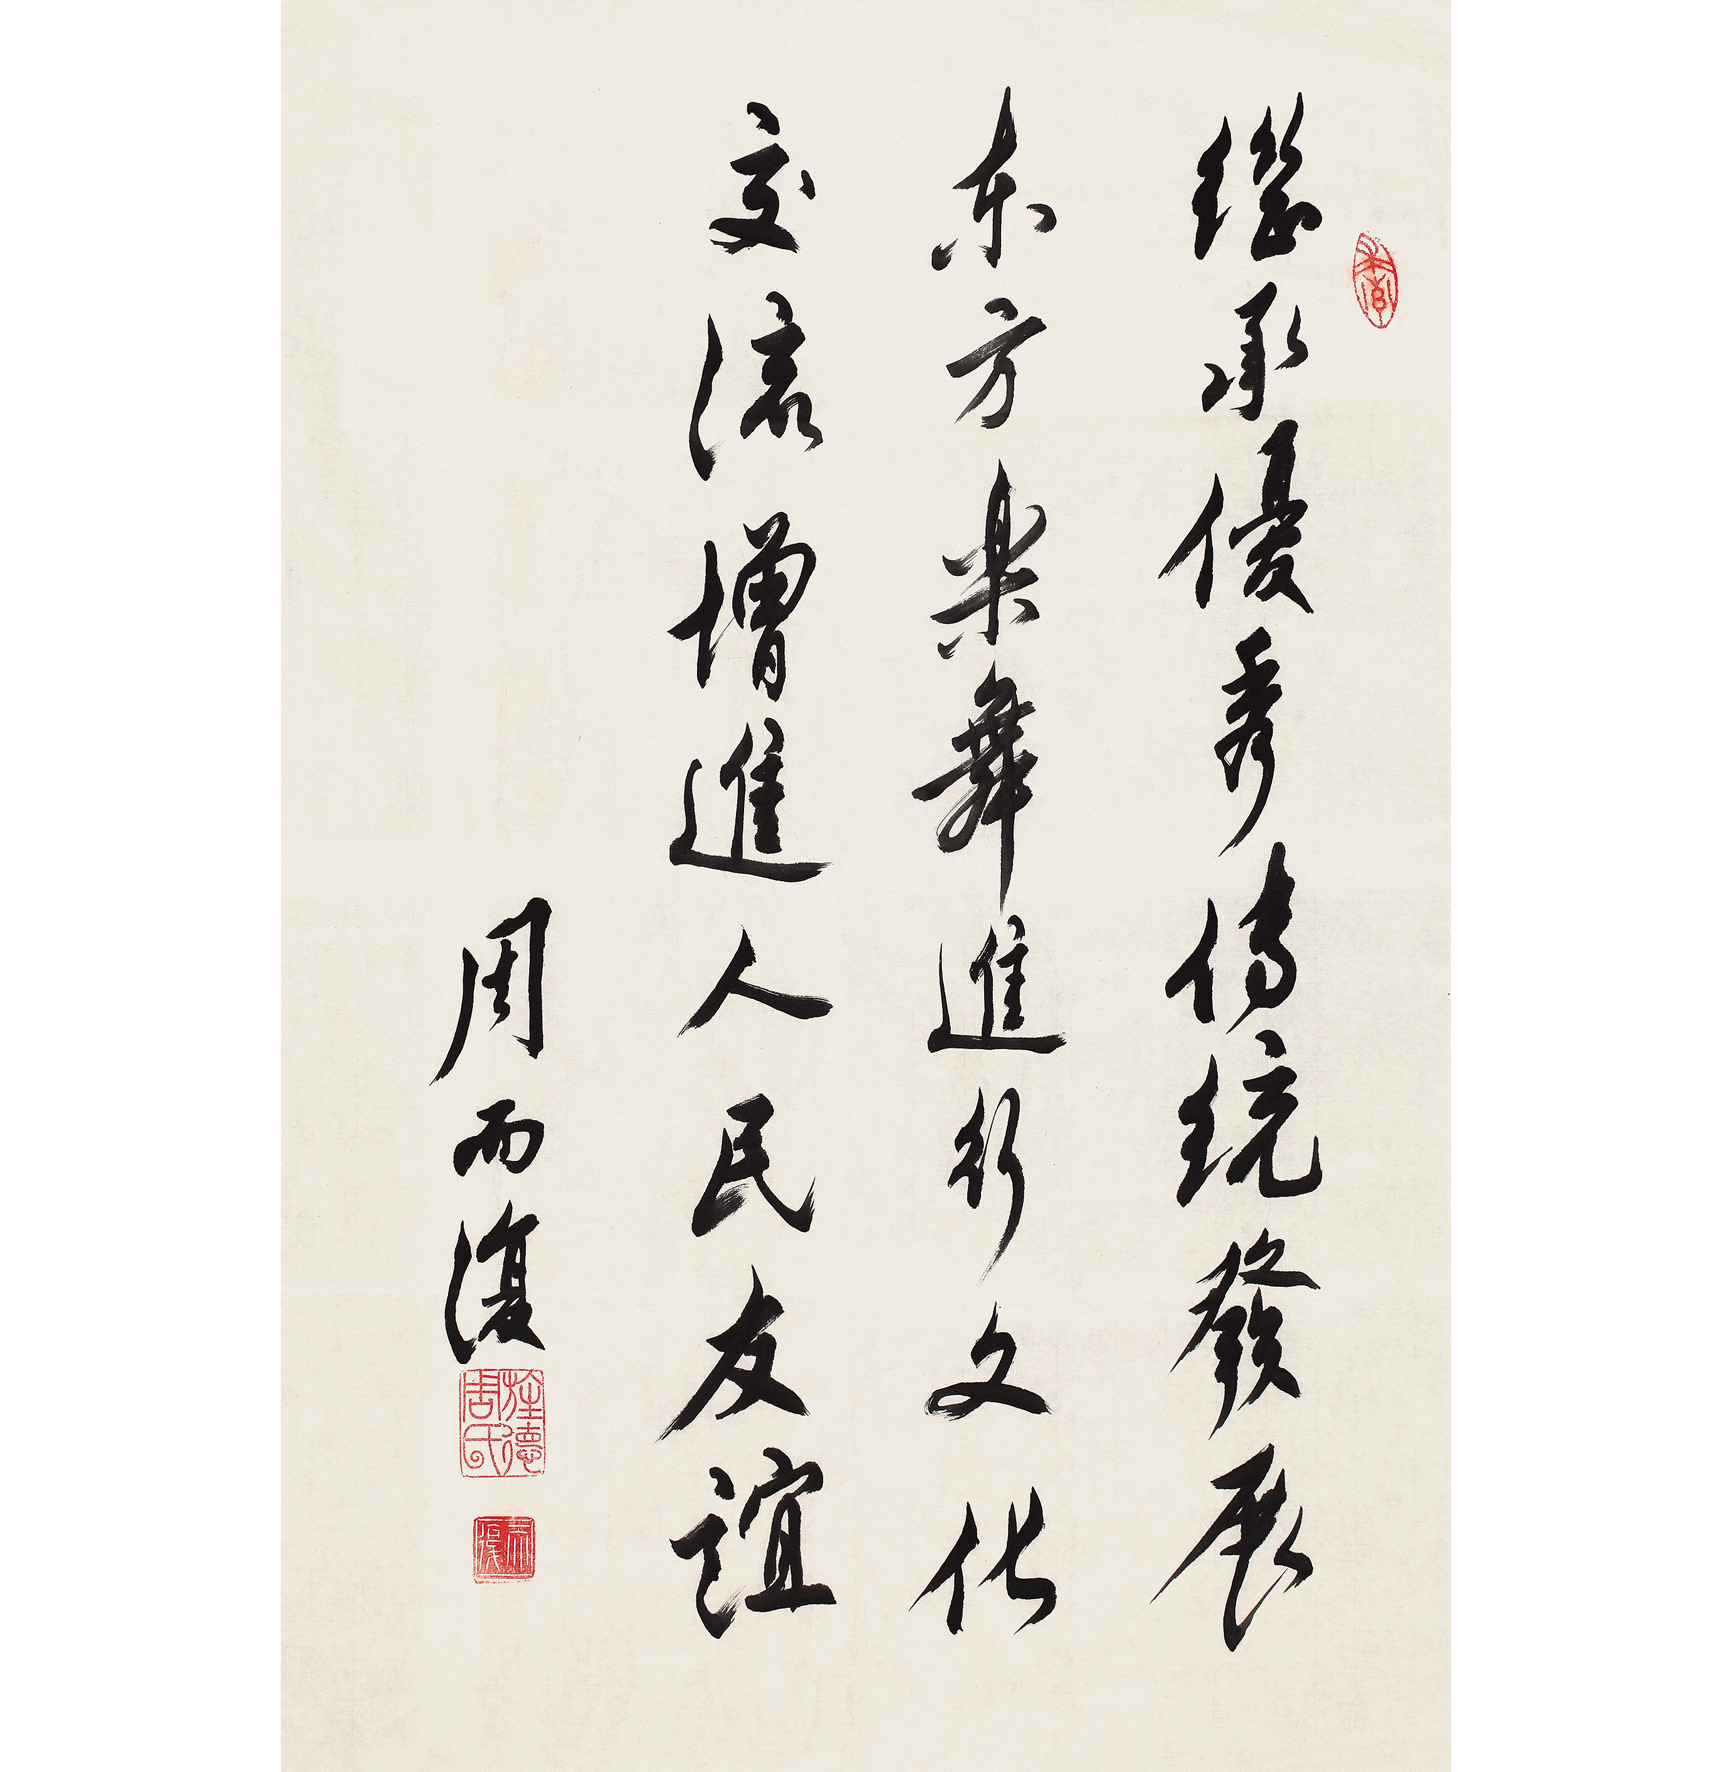 继承優秀傳統發展
东方樂舞進行文化
交流增進人民友誼
周而復
周氏